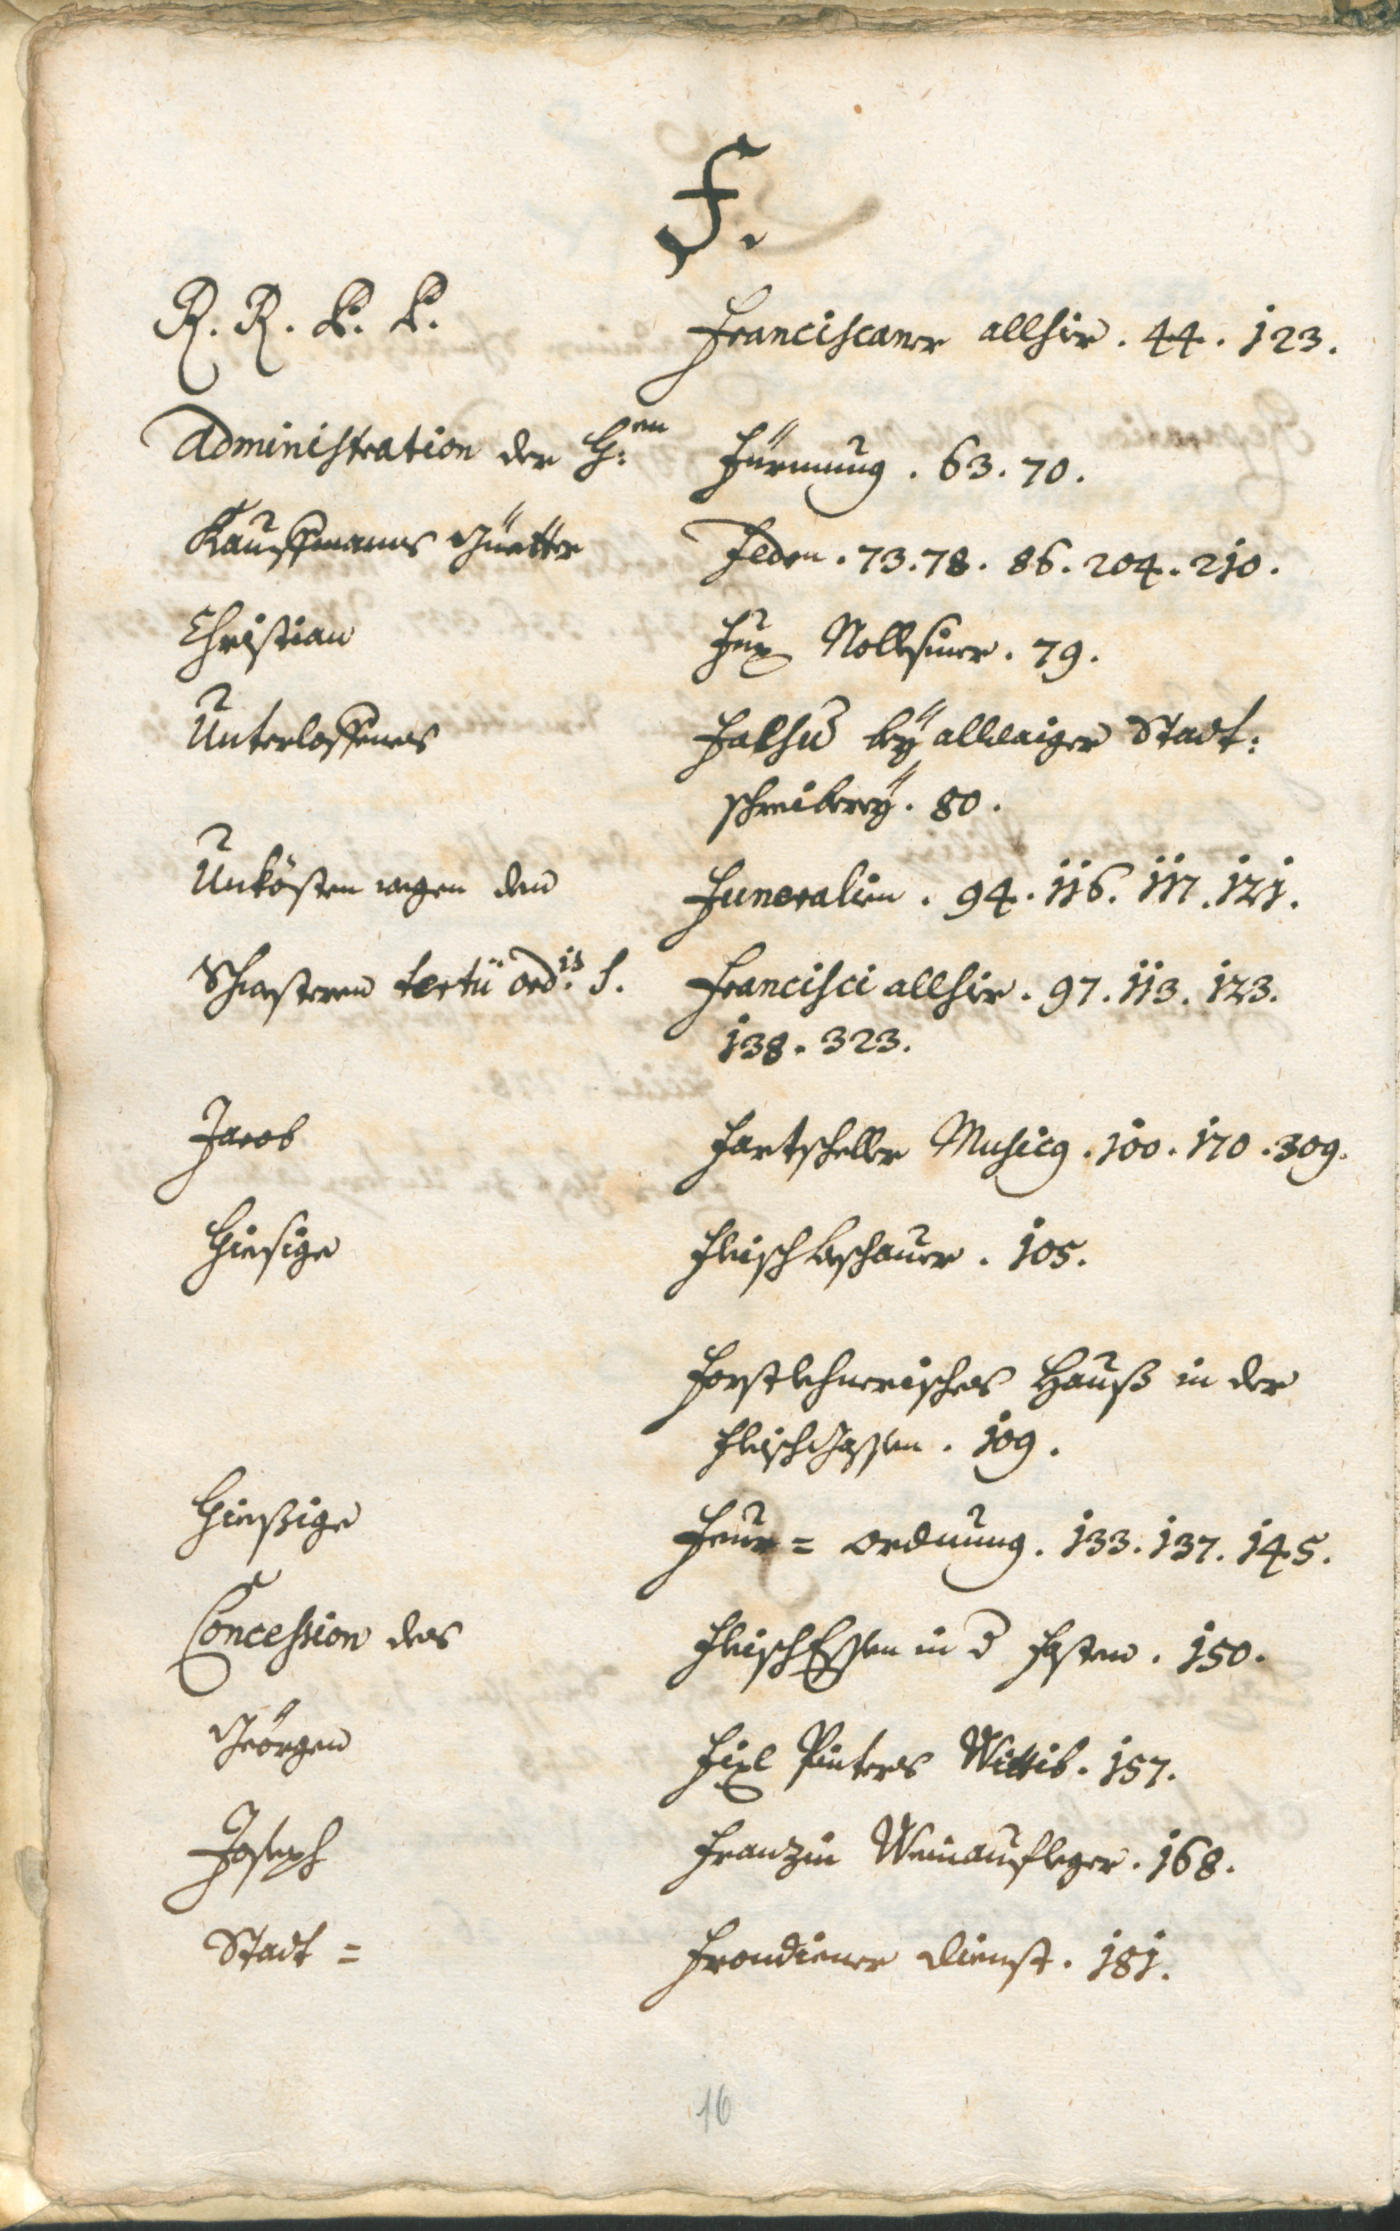 F.
R. R. P. P. Franciscaner allhir. 44. 123.
Administration der H:en Fürmung. 63. 70.
Kauffmanns Güetter Feden. 73. 78. 86. 204. 210.
Christian Fux 79.
Unterloffenes Falsũ beÿ allhiesiger Stadt:
schreibereÿ. 80.
Unkösten wegen den Funeralien. 94. 116. 117. 121.
Schwestern tertii ord:is S. Francisci allhir. 97. 113. 123.
138. 323.
Jacob Fartscheller Musicg. 100. 170. 309.
Hiesige Fleischbeschauer. 105.
Forstlehnerisches Hauß in der
Fleischgassen. 109.
Hießige Feur= ordnung. 133. 137. 145.
Concession des FleischEssen in d Fasten. 150.
Geörgen Fixl Pinters Wittib. 157.
Joseph Franzin Weinaufleger. 168.
Stadt= Frondiener dienst. 181.
16